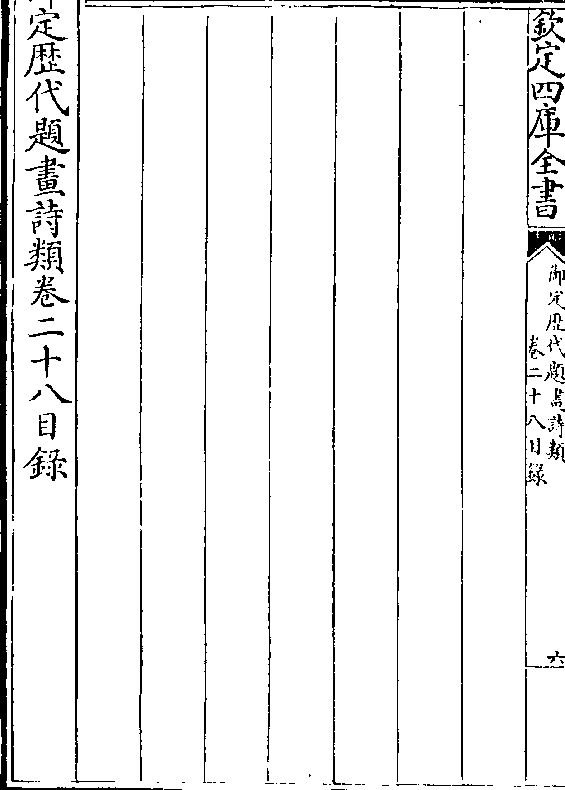 欽定四庫全書
御定歷代題畫詩類
卷二十八目錄
六
定歷代題畫詩類卷二十八目錄